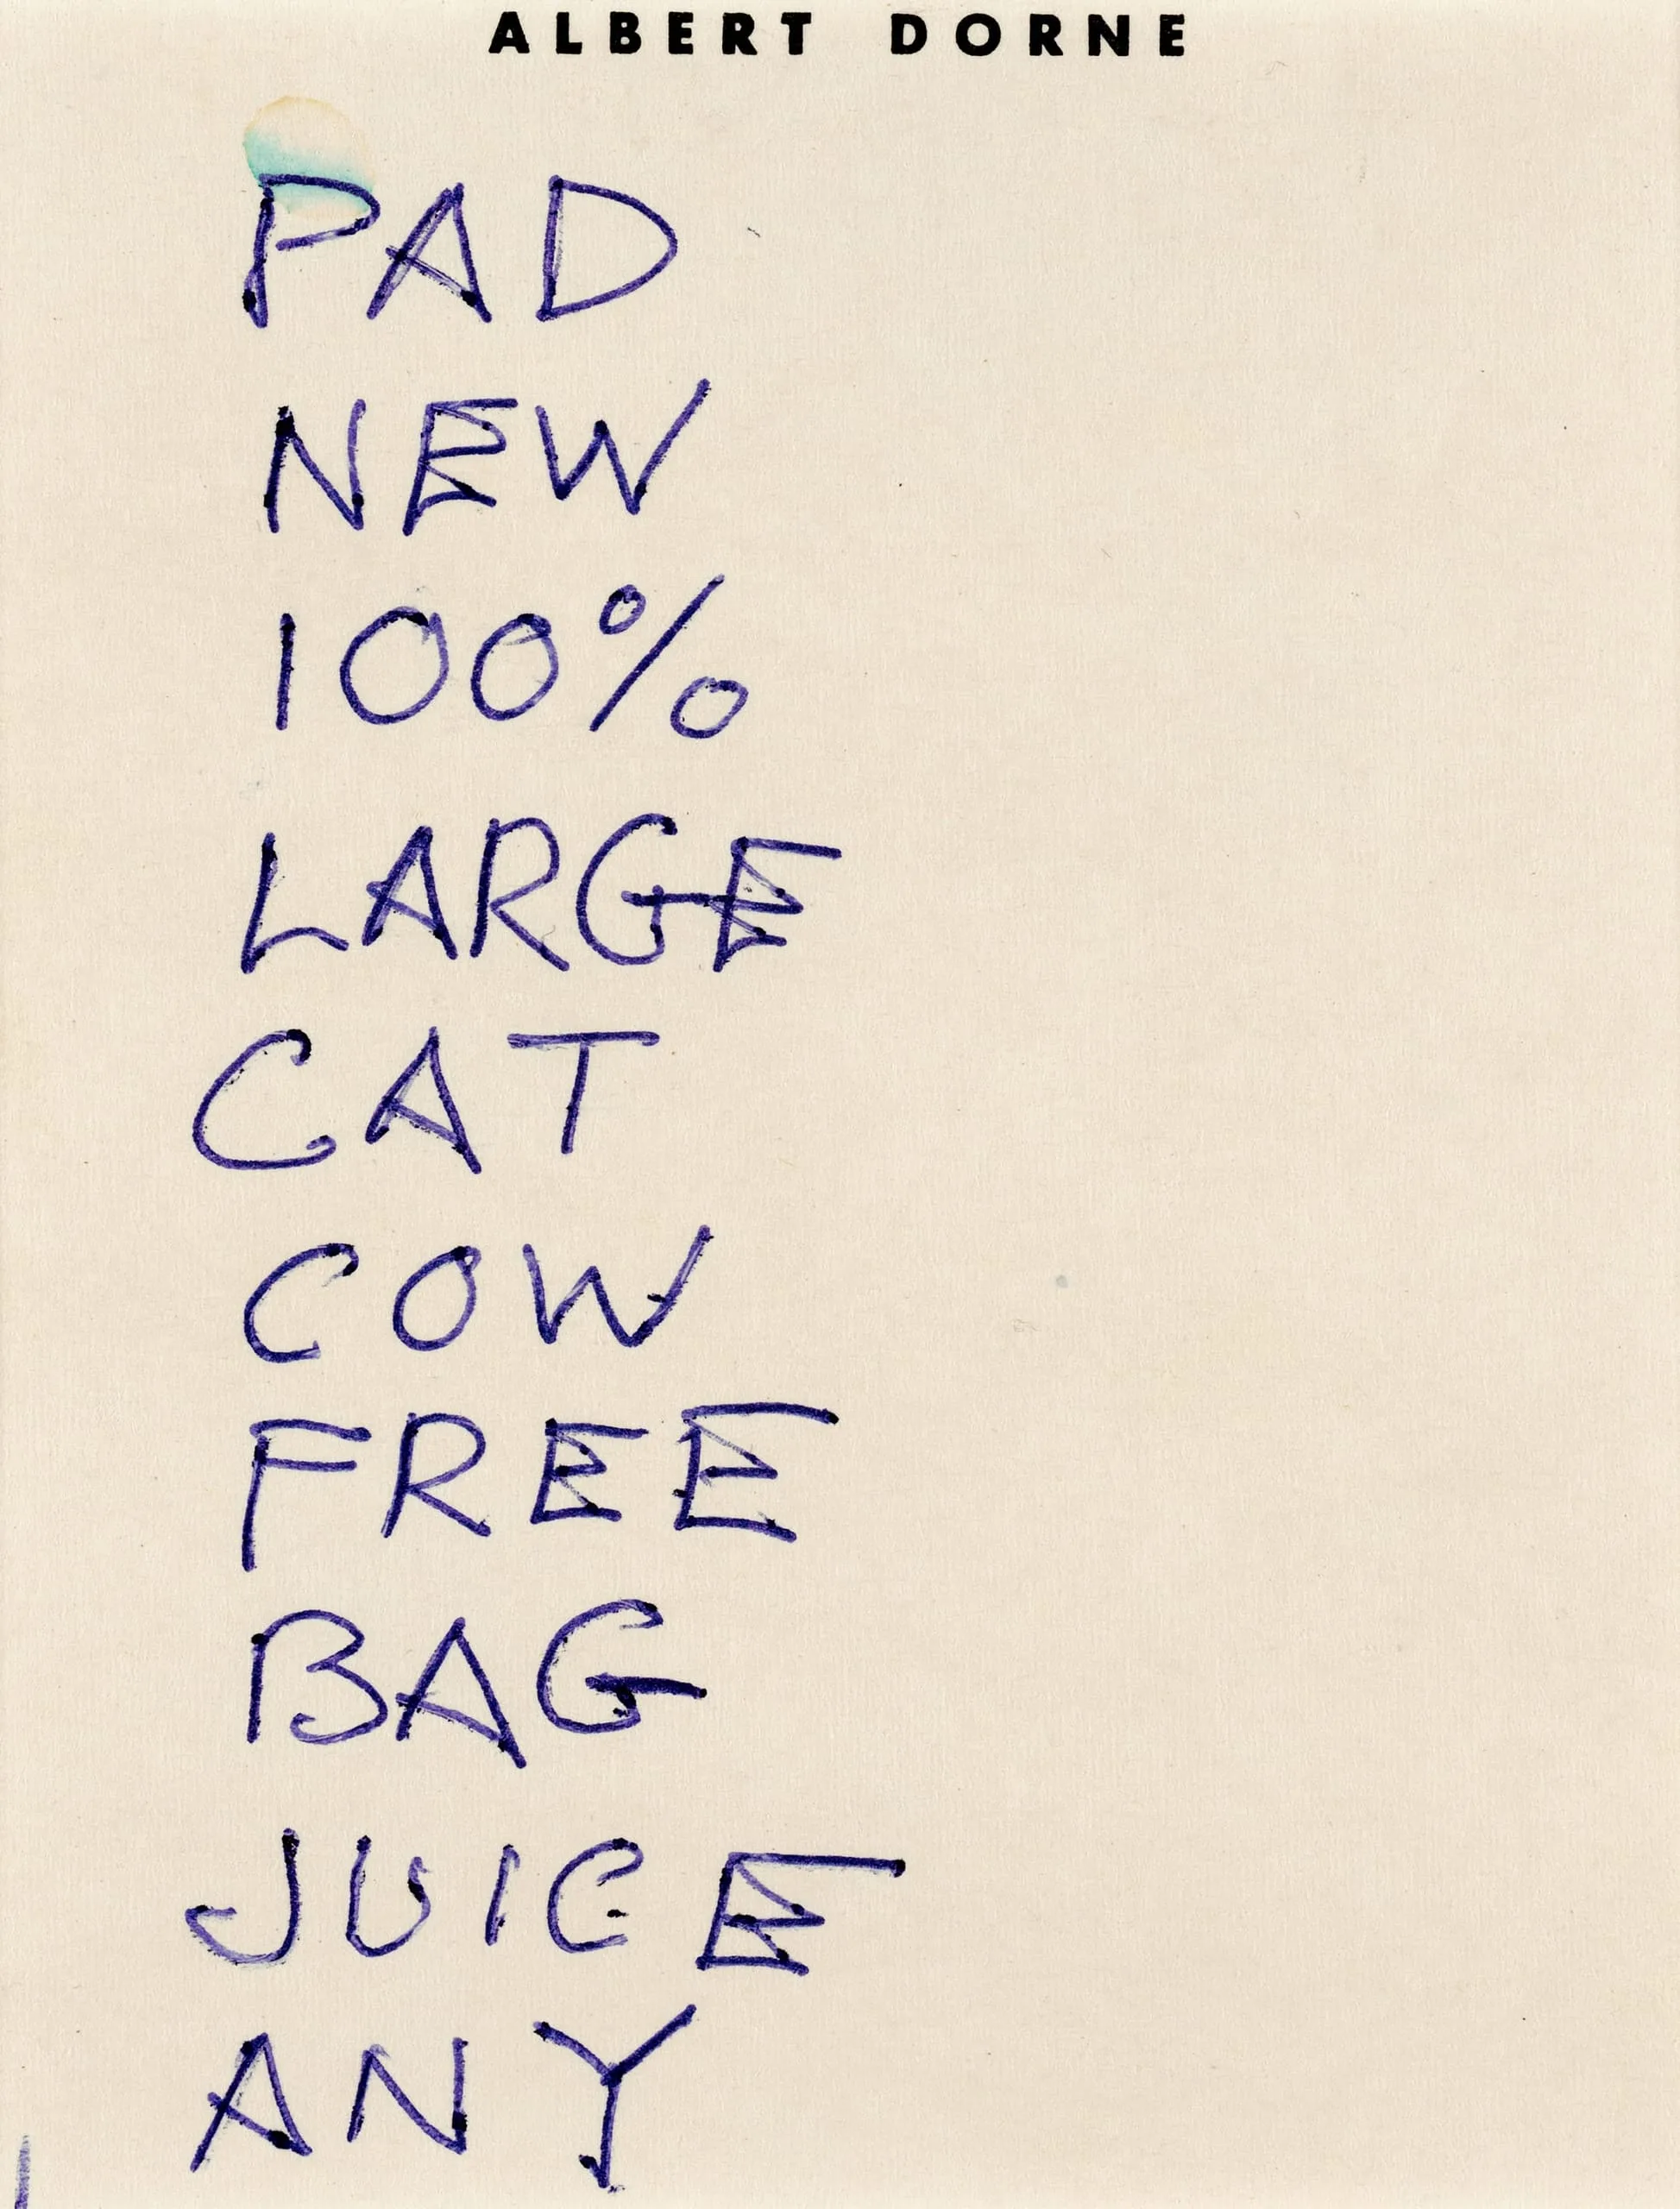 ALBERT DORNE
PAD
NEW
100%
LARGE
CAT
COW
FREE
BAG
JUICE
ANY